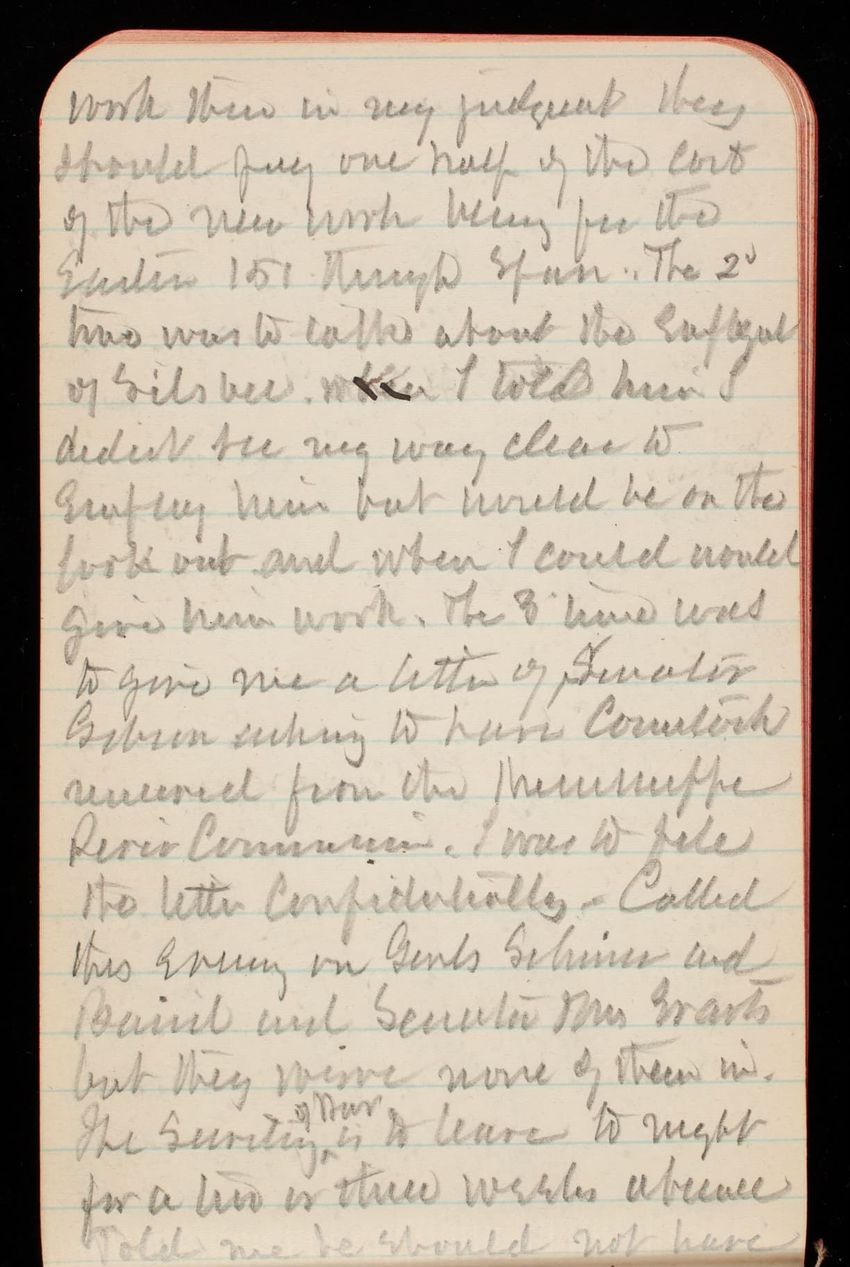 work then in my judgment they
should pay one half of the cost
of the new work being for the
Eastern 151 through Span. The 2d
time was to talk about the Employt
of Silsbee. when I told him I
didn't see my way clear to
Employ him but would be on the
look out and when I could would
give him work. The 3 time was
to give me a letter of Senator
Gibson asking to have Comstock
removed from the
River Commission. I was to file
the letter Confidentially. Called
this Evening on Genls and
Baird and Senator & Mrs Evarts
but they were none of them in.
The Secretary of War is to leave to night
for a two or three weeks absence
Told me he should not have